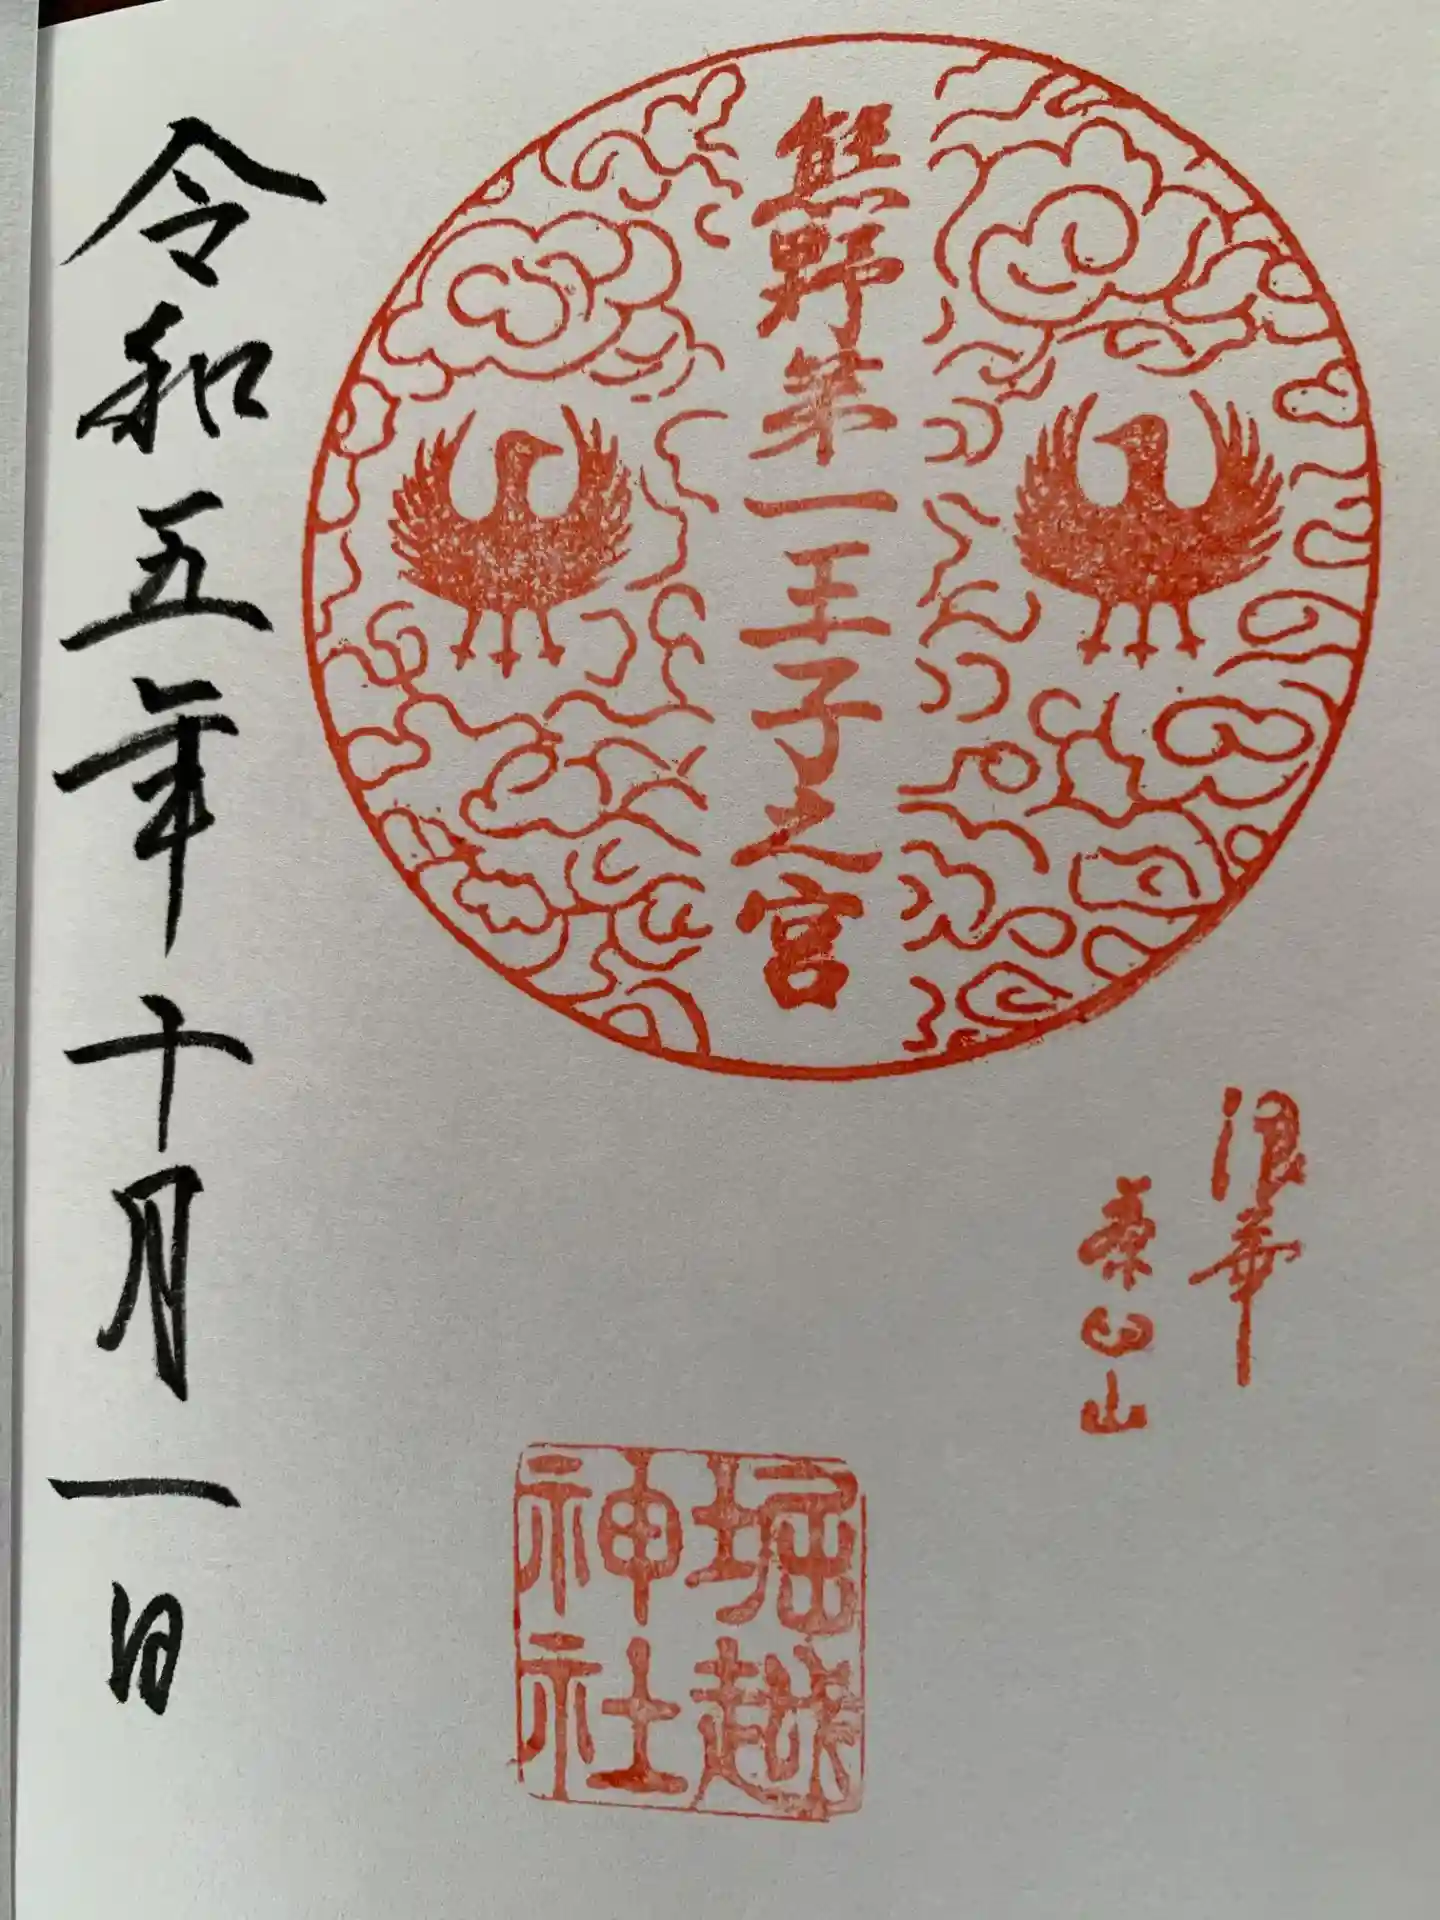 浪華
茶臼山
熊野第一王子之宮
堀越
神社
令和五年十月一日